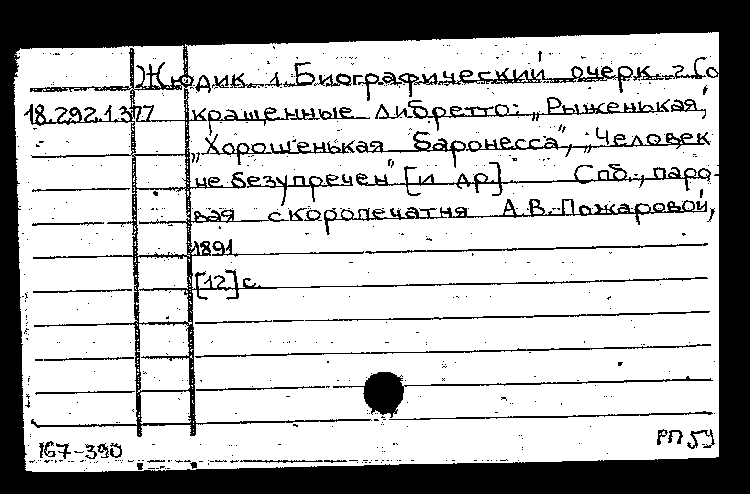 Жюдик. 1. Биографический очерк. 2. Со
18.292.1.377 кращенные либретто: „Рыженькая",
„Хорошенькая баронесса", „Человек
не безупречен" [и др]. Спб., паро-
вая скоропечатня А.В. Пожаровой,
1891.
[12] с.
167-390 РП 59